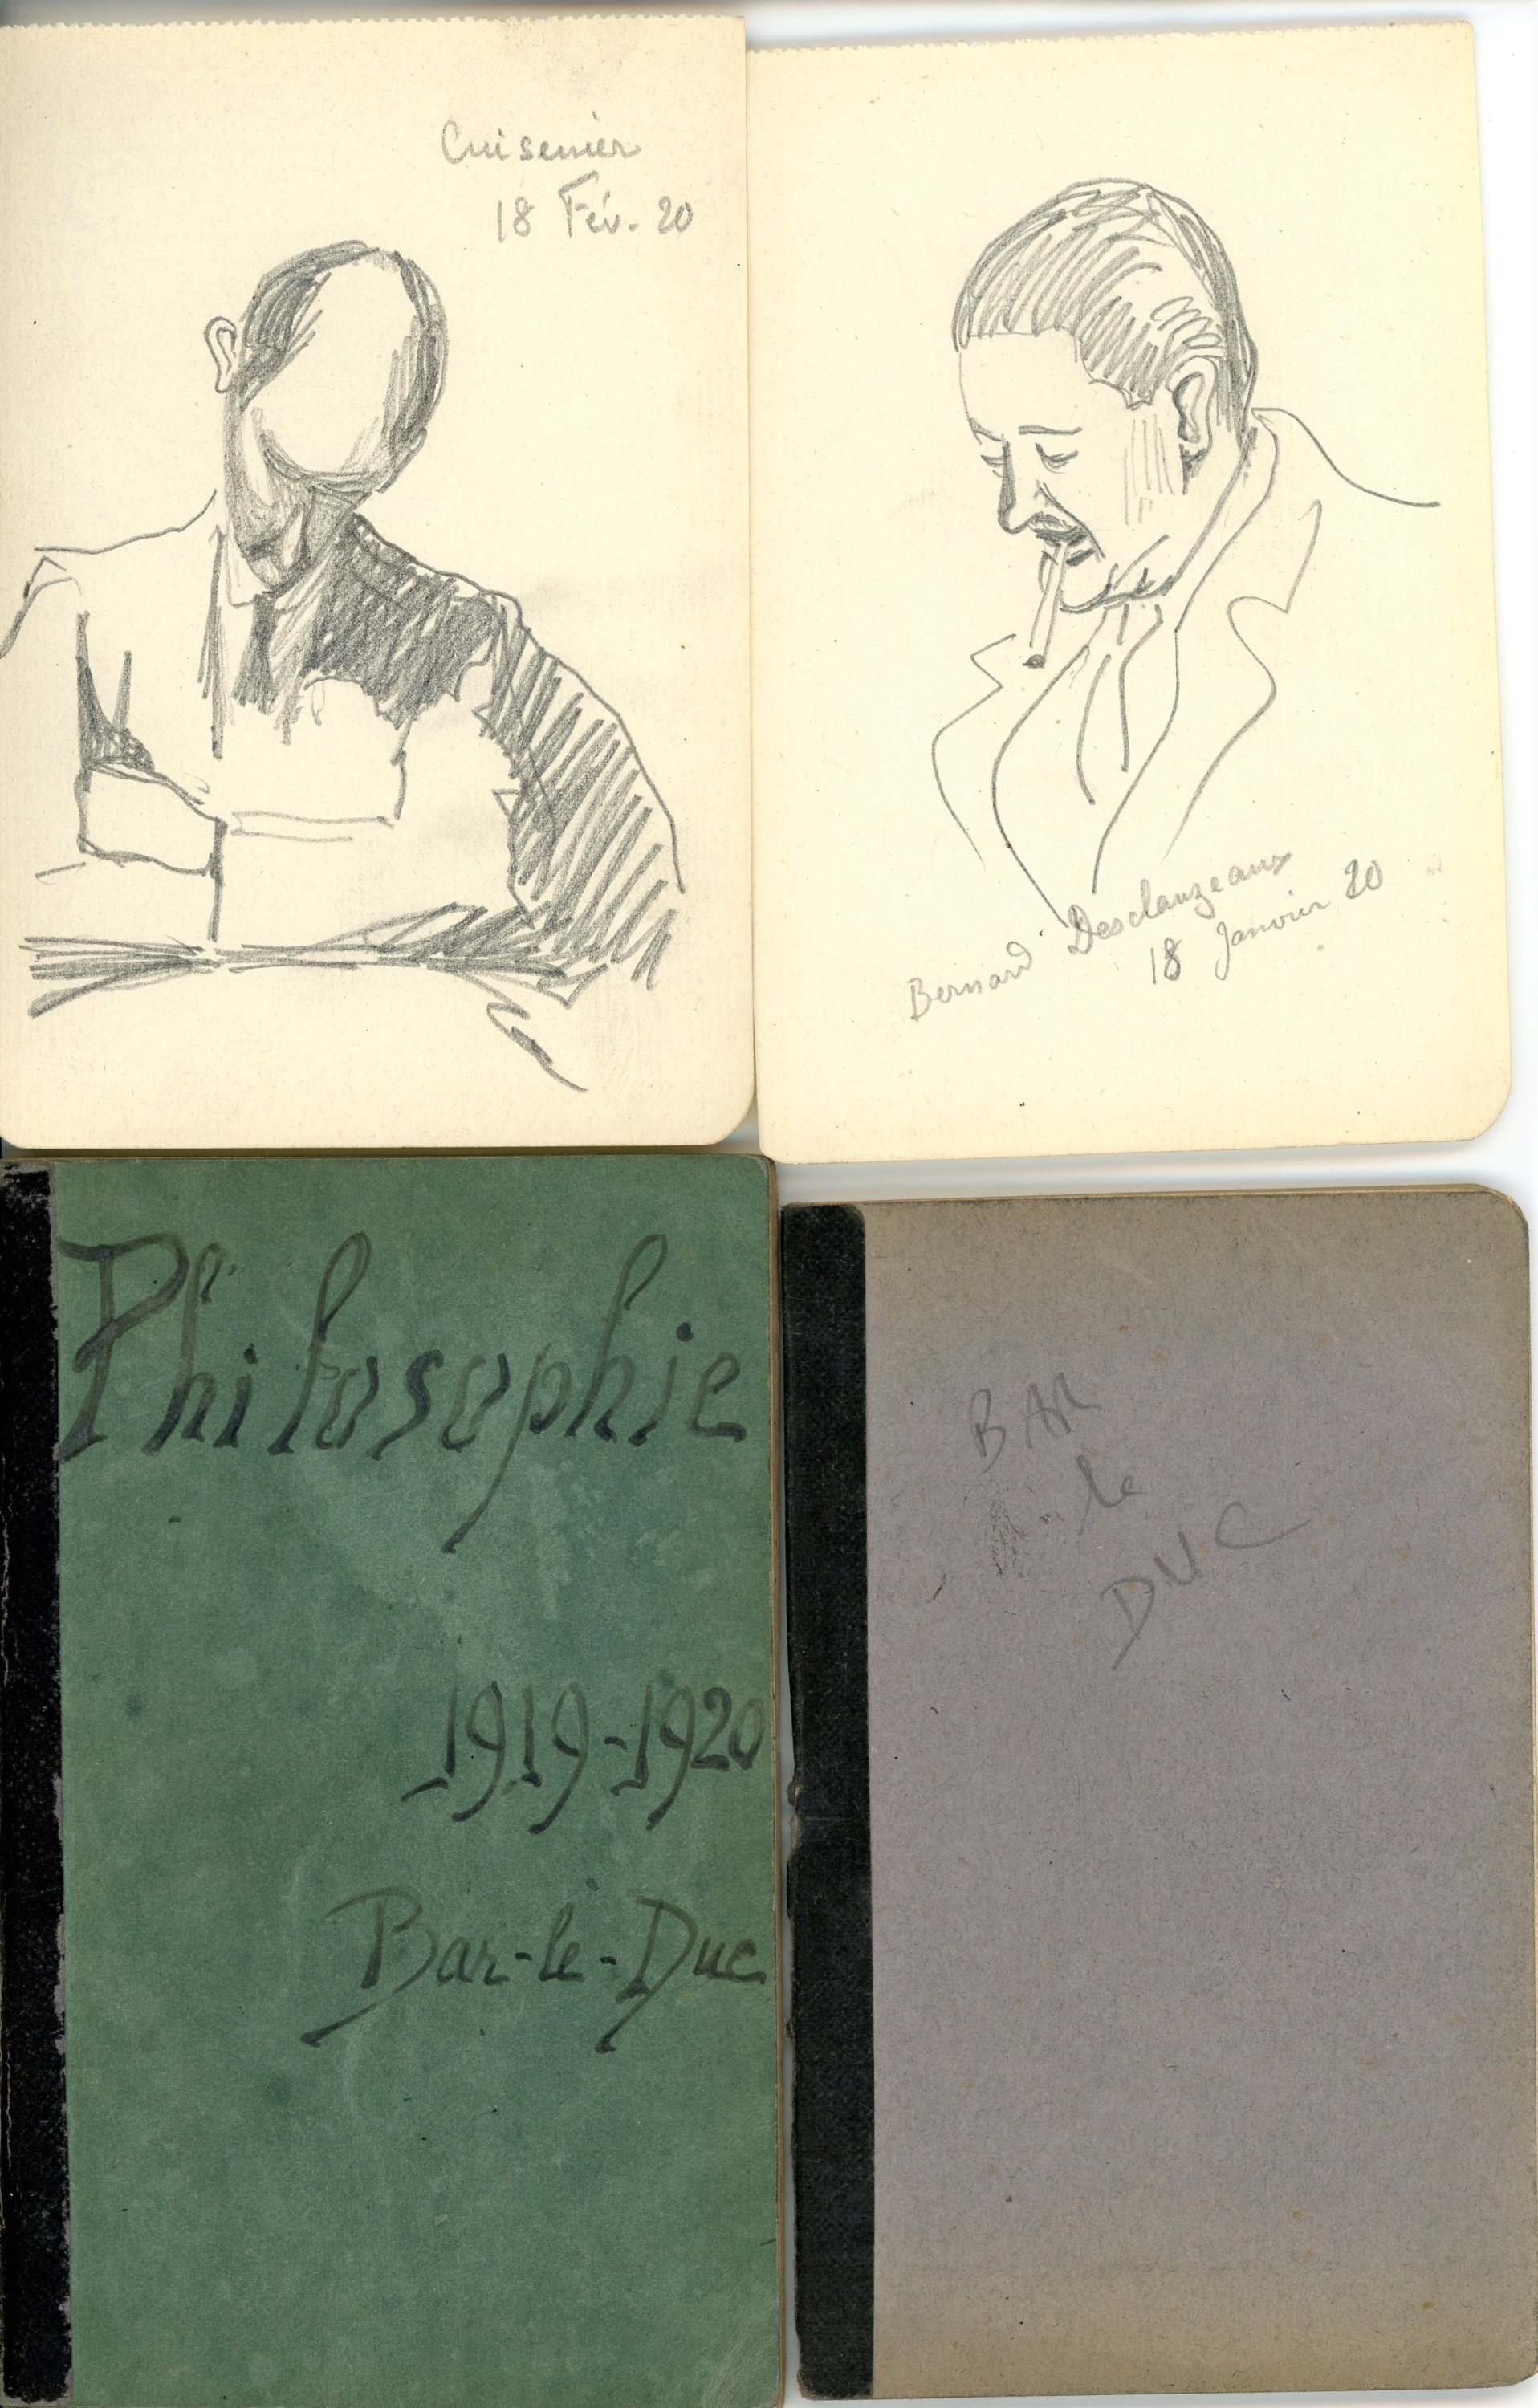 Cuisenier
18 Fév. 20
Bernard Desclauzeaux
18 Janvier 20
Philosophie
1919-1920
Bar-le-Duc
BAR
le
DUC